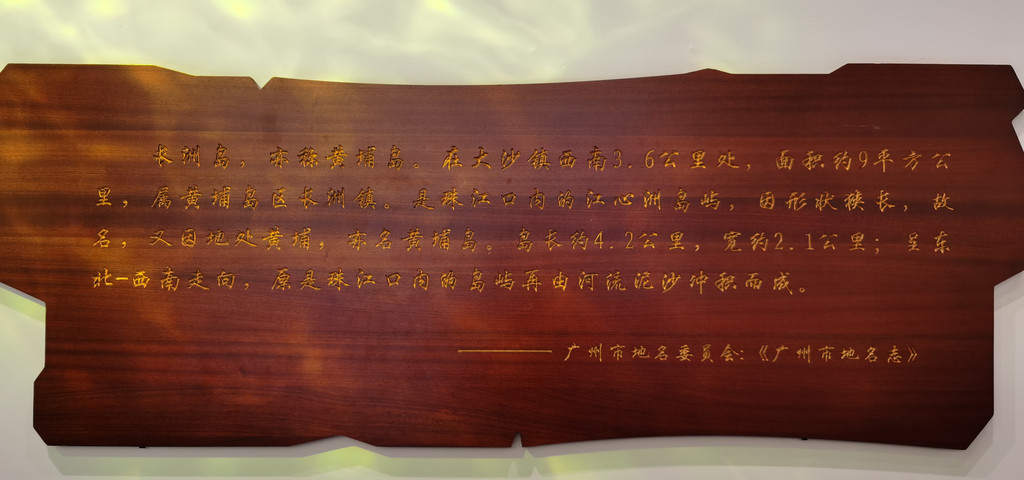 长洲岛，亦称黄埔岛。在大沙镇西南3.6公里处，面积约9平方公
里，属黄埔岛区长洲镇。是珠江口内的江心洲岛屿，因形状狭长，故
名，又因地处黄埔，亦名黄埔岛。岛长约4.2公里，宽约2.1公里；呈东
北-西南走向，原是珠江口内的岛屿再由河流泥沙冲积而成。
——广州市地名委员会:《广州市地名志》